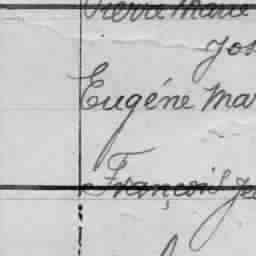 Pierre Marie
Jos
Eugéne Mar
François Je